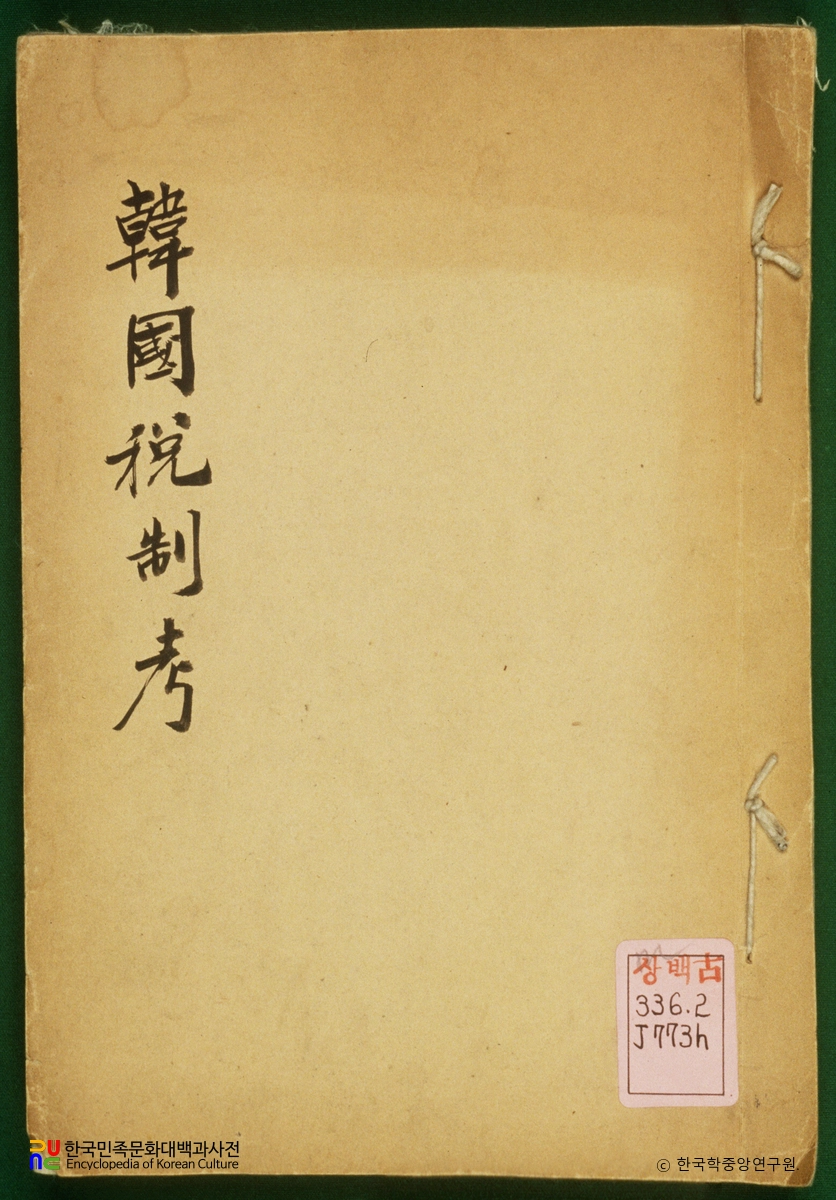 韓國稅制考
상백古
336.2
J773h
한국민족문화대백과사전
Encyclopedia of Korean Culture
© 한국학중앙연구원.